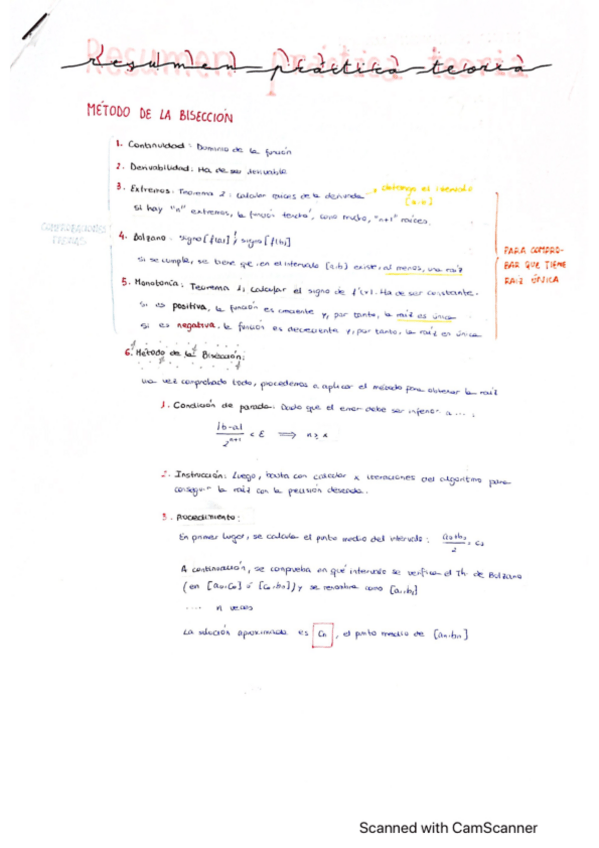 Resumen práctica teoría
MÉTODO DE LA BISECCIÓN
1. Continuidad: Dominio de la función
2. Derivabilidad: Ha de ser derivable
3. Extremos: Teorema 2: calcular raíces de la derivada → obtengo el intervalo [a,b]
Si hay "n" extremos, la función tendrá, como mucho, "n+1" raíces.
COMPROBACIONES PREVIAS
4. Bolzano: signo[f(a)] ≠ signo[f(b)]
Si se cumple, se tiene que en el intervalo [a,b] existe, al menos, una raíz
5. Monotonía: Teorema 1; calcular el signo de f'(x). Ha de ser constante.
Si es positiva, la función es creciente y, por tanto, la raíz es única
Si es negativa, la función es decreciente y, por tanto, la raíz es única
PARA COMPRO-
BAR QUE TIENE
RAÍZ ÚNICA
6. Método de la Bisección:
Una vez comprobado todo, procedemos a aplicar el método para obtener la raíz
1. Condición de parada: Dado que el error debe ser inferior a ....:
|b-a| / 2^(n+1) < ε ⟹ n ≥ x
2. Instrucción: Luego, basta con calcular x iteraciones del algoritmo para
conseguir la raíz con la precisión deseada.
3. Procedimiento:
En primer lugar, se calcula el punto medio del intervalo: (a₀+b₀)/2 = c₀
A continuación, se comprueba en qué intervalo se verifica el Th. de Bolzano
(en [a₀,c₀] ó [c₀,b₀]) y se renombra como [a₁,b₁]
.... n veces
La solución aproximada es cₙ, el punto medio de [aₙ,bₙ]
Scanned with CamScanner